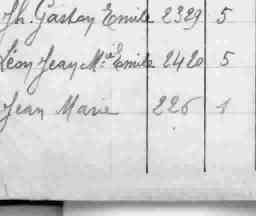 Jh. Gaston Emile 2329 5
Léon Jean Mie Emile 2420 5
Jean Marie 226 1